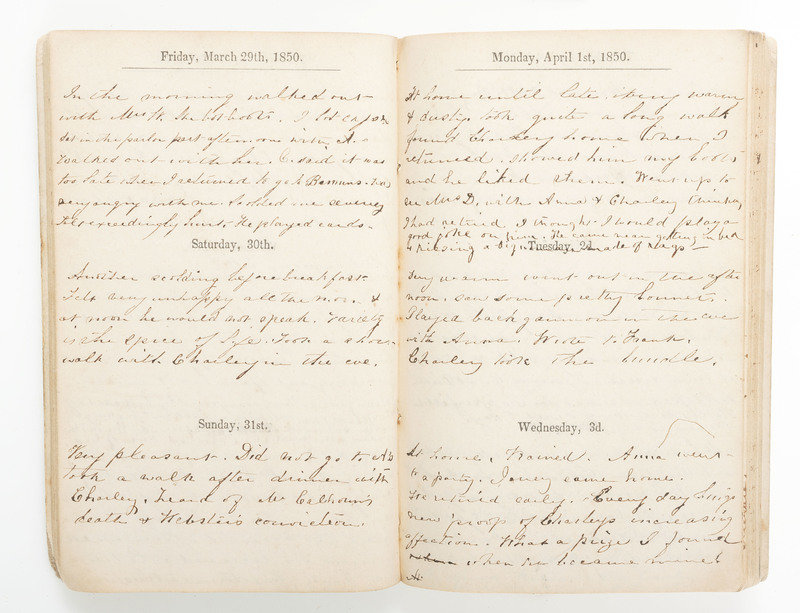 Friday, March 29th, 1850.
In the morning walked out
with I
set in the parlor part afternoon
walked out with her. said it was
too late when I returned to go to
very angry with me scolded me severely
exceedingly hurt. He played cards.
Saturday, 30th.
Another scolding before breakfast
Felt very unhappy all the morn &
at noon he would not speak. Variety
is the spice of life. Took a short
walk with Charley in the eve.
Sunday, 31st.
Very pleasant. Did not go to
took a walk after dinner with
Charley. heard of Mr Calhoun's
death & Webster's conviction.
Monday, April 1st, 1850.
At home until late, being warm
& dusty. took quite a long walk
found Charley home when I
returned. showed him my boots
and he liked them. Went up to
see Mrs D. with Anna & Charley thinking
I had retired, I thought I would play a
good joke on him. He came near getting in bed
& kissing a made of rags—
Tuesday, 2d.
Very warm went out in the after
noon. saw some pretty bonnets.
Played backgammon in the eve
with Anna. Wrote to Frank.
Charley took the bundle.
Wednesday, 3d.
At home. Rained. Anna went
to a party. came home.
We retired early. Every day brings
new proof of Charleys increasing
affection. What a prize I found
when he became mine!